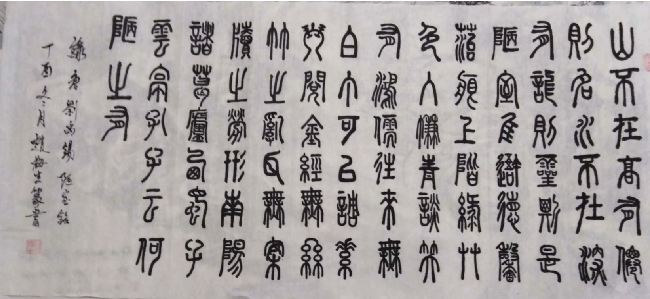 山不在高有僊
則名水不在深
有龍則靈斯是
陋室惟吾德馨
苔痕上階綠艸
色入簾青談笑
有鴻儒往來無
白丁可以調素
琴閱金經無絲
竹之亂耳無案
牘之勞形南陽
諸葛廬西蜀子
雲亭孔子云何
陋之有
錄唐劉禹錫陋室銘
丁酉冬月趙生篆書